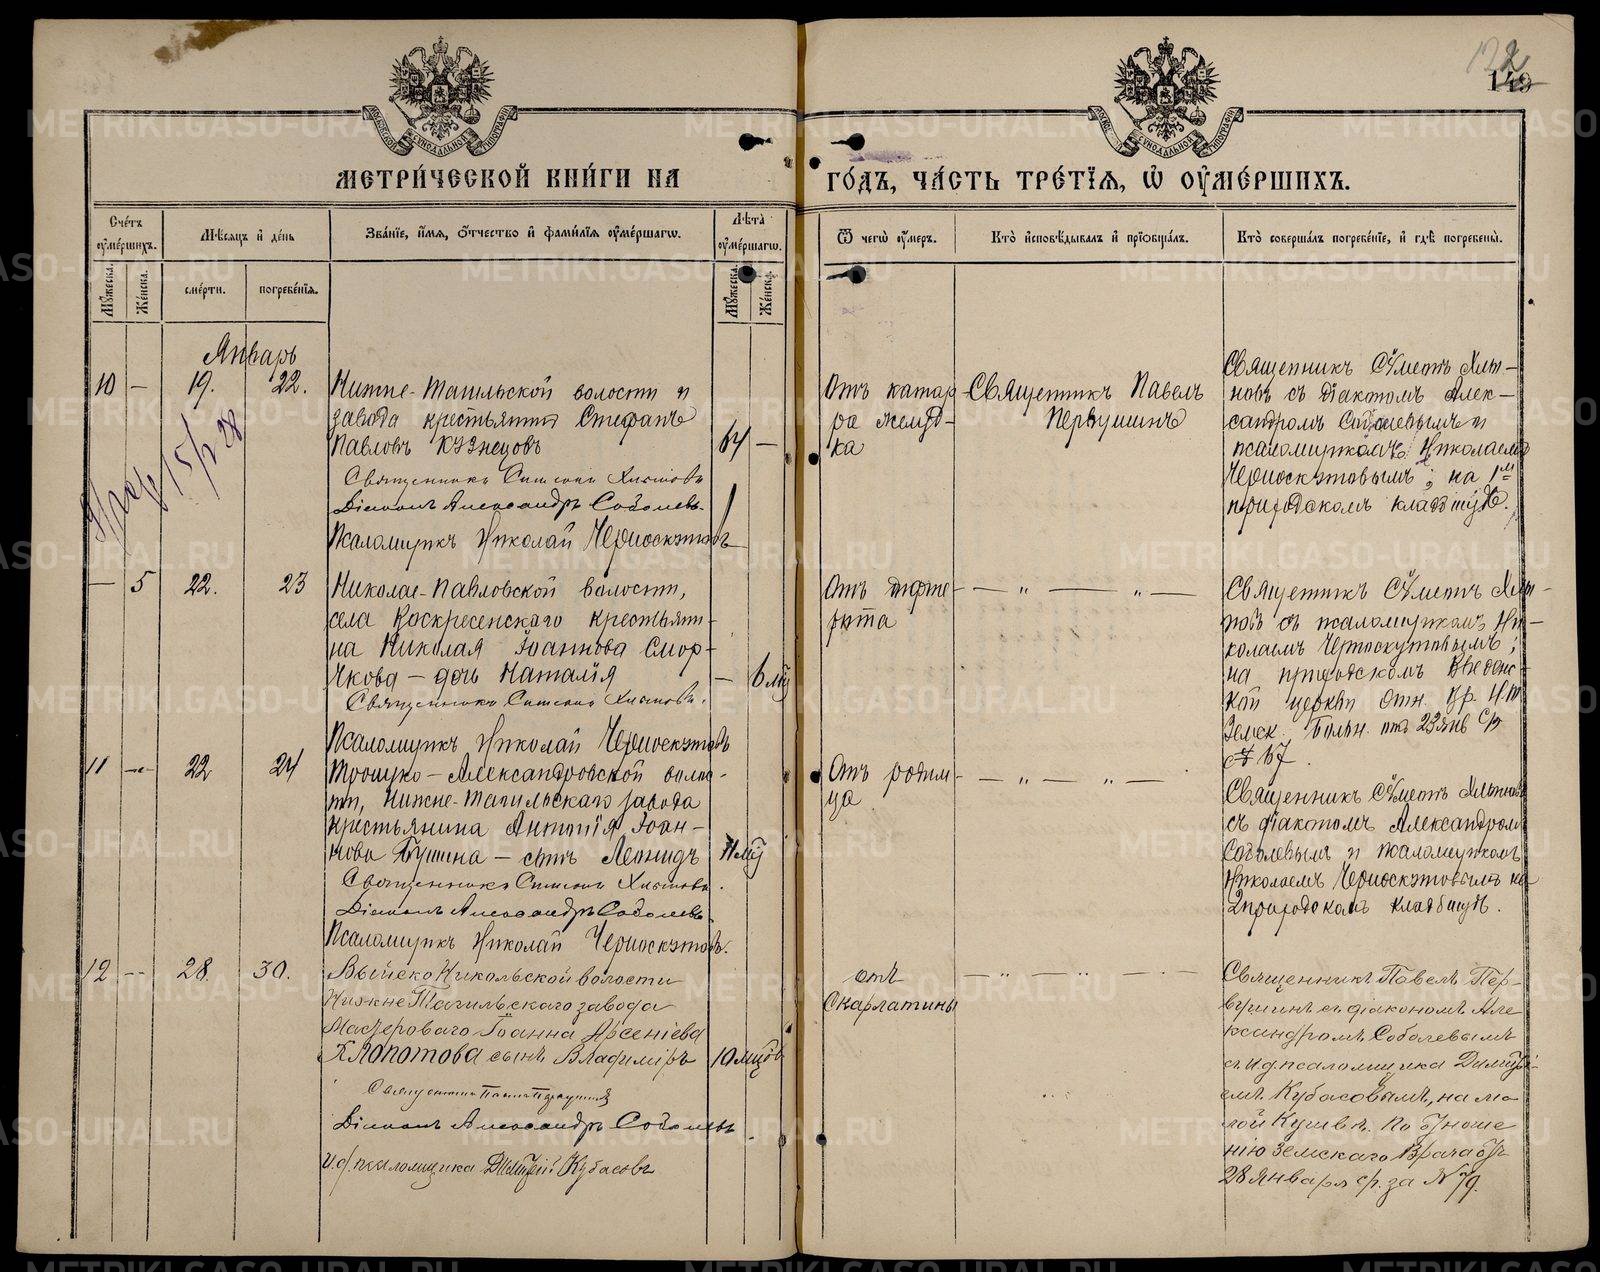 149
122
МЕТРИ́ЧЕСКОЙ КНИ́ГИ НА
ГО́ДЪ, ЧА́СТЬ ТРЕ́ТІЯ, Ѽ ОУМЕ́РШИХЪ.
Сче́тъ оуме́ршихъ.
Мѣ́сяцъ и де́нь
Зва́ніе, и́мя, о́тчество и фами́лія оуме́ршагѡ.
Лѣ́та оуме́ршагѡ.
Ѿ чегѡ̀ оу́меръ.
Кто̀ исповѣ́дывалъ и пріѡбща́лъ.
Кто̀ соверша́лъ погребе́ніе, и гдѣ̀ погребены̀.
Мꙋ́жеска.
Же́нска.
сме́рти.
погребе́нія.
Мꙋ́жеска.
Же́нска.
Январь
10 — 19. 22.
Нижне-Тагильской волости и
завода крестьянинъ Стефанъ
Павловъ Кузнецовъ
64 —
Священникъ Симеонъ Хлыновъ
Діаконъ Александръ Соболевъ.
Псаломщикъ Николай Черноскутовъ
Отъ катар
ра желуд-
ка
Священникъ Павелъ
Первушинъ
Священникъ Сѵмеонъ Хлы-
новъ съ діакономъ Алек-
сандромъ Соболевымъ и
псаломщикомъ Николаемъ
Черноскутовымъ; на 1мъ
приходскомъ кладбищѣ.
15/II 28
— 5 22. 23
Николае-Павловской волости,
села Воскресенского крестьяни-
на Николая Іоаннова Смор-
чкова — дочь Наталія
— 6 мц
Священникъ Симеонъ Хлыновъ.
Псаломщикъ Николай Черноскутовъ
Отъ дифте-
рита
— " — " —
Священникъ Сѵмеонъ Хлы-
новъ съ псаломщикомъ Ни-
колаемъ Черноскутовымъ;
на приходскомъ Введенс-
кой церкви отн. Вр. Н-Т
Земск. Больн. отъ 23 янв с/г
№ 67.
11 — 22 24
Троицко-Александровской волос-
ти, Нижне-Тагильскаго завода
крестьянина Антонія Іоан-
нова Бушина — сынъ Леонидъ
Священникъ Симеонъ Хлыновъ.
Діаконъ Александръ Соболевъ.
Псаломщикъ Николай Черноскутовъ.
Отъ родим-
ца
— " — " —
Священникъ Сѵмеонъ Хлыновъ
съ діакономъ Александромъ
Соболевымъ и псаломщикомъ
Николаемъ Черноскутовымъ на
2 приходскомъ кладбищѣ.
12 — 28. 30.
Выйско Никольской волости
Нижне Тагильскаго завода
Мастероваго Іоанна Арсеніева
Хлопотова сынъ Владиміръ
10 мцовъ
Священникъ Павелъ Первушинъ
Діаконъ Александръ Соболевъ
И.д. псаломщика Димитрій Кубасовъ
отъ
Скарлатины
— " — " — · —
Священникъ Павелъ Пер-
вушинъ съ діакономъ Але
ксандромъ Соболевымъ
съ и.д. псаломщика Димитрі-
емъ Кубасовымъ, на ма-
лой Кушвѣ. По отноше
нію Земскаго Врача отъ
28 Января с.г. за № 79.
METRIKI.GASO-URAL.RU